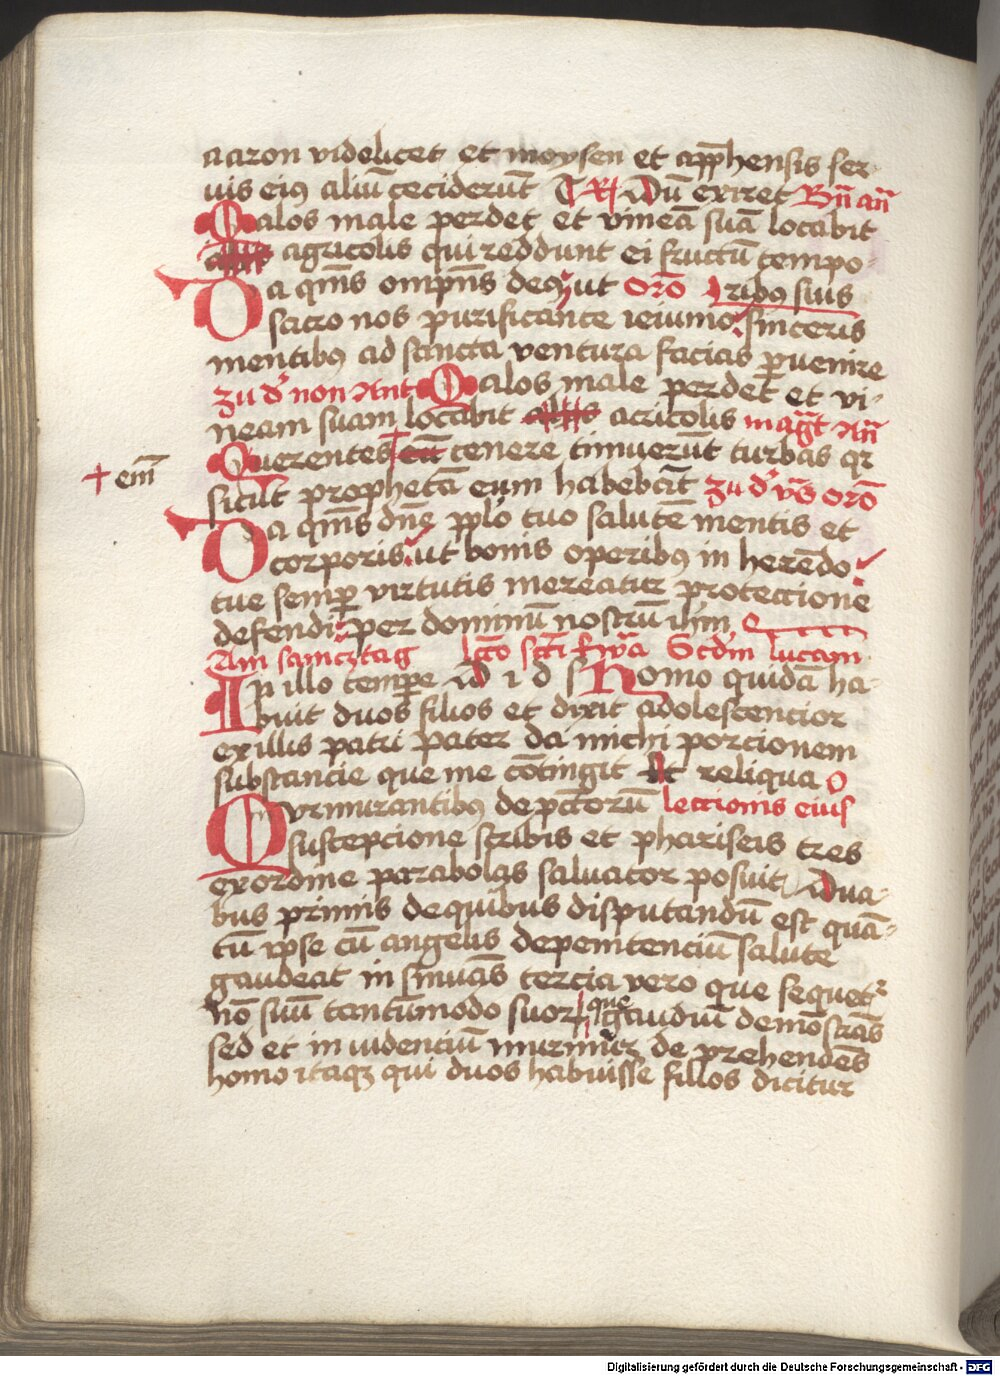 aaron videlicet et moysen et app̅hensis ser-
uis eiꝯ aliū ceciderūt R̸ Dū exiret Bn̄ an̄
Malos male perdet et vineā suā locabit
alijs agricolis qui reddunt ei fructū tempo-
Da qm̄s omp̄ns deꝯ ut oro ribꝯ suis
sacro nos purificante ieiunio sinceris
mentibꝯ ad sancta ventura facias ꝑuenire
zu dr̄ non Ant Malos male perdet et vi-
neam suam locabit alijs acricolis mag̅t An̄
Querentes eū tenere timuerūt turbas qr
+ em̄
sicut prophetā eum habebāt zu dr̄ vs̄ oro
Da qm̄s dn̄e pp̄lo tuo salutē mentis et
corporis ut bonis operibꝯ in herēdo
tue semꝑ virtutis mereatur protectione
defendi per dominū nostrū ihm̄
Am samcztag lc̄o sc̄ti ewā Scdm lucam
In illo tempore d i d s Homo quidā ha-
buit duos filios et dixit adolescencior
ex illis patri pater da michi porcionem
substancie que me cōtingit Et reliqua
Murmurantibꝯ de pctorū lectionis eius
suscepcione scribis et phariseis tres
ex ordine parabolas saluator posuit Dua-
bus primis de quibus disputandū est quā-
tū ipse cū angelis de penitenciū salute
gaudeat in sinuās tercia vero que sequetr
nō suū tantūmodo suorꝙ que gaudiū demōstrās
sed et in uidenciū murmur de prehendēs
homo itaqꝫ qui duos habuisse filios dicitur
Digitalisierung gefördert durch die Deutsche Forschungsgemeinschaft - DFG